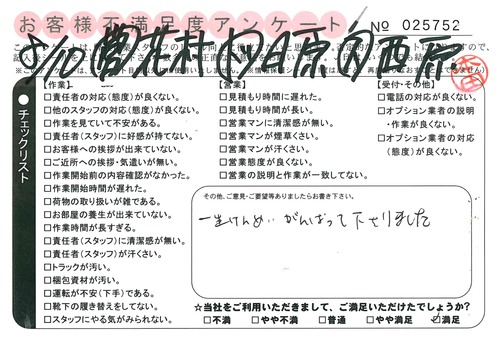 お客様不満足度アンケート
№ 025752
チェックリスト
【作業】
□責任者の対応(態度)が良くない。
□他のスタッフの対応(態度)が良くない。
□作業を見ていて不安がある。
□責任者(スタッフ)に好感が持てない。
□お客様への挨拶が出来ていない。
□ご近所への挨拶・気遣いが無い。
□作業開始前の内容確認がなかった。
□作業開始時間が遅れた。
□荷物の取り扱いが雑である。
□お部屋の養生が出来ていない。
□作業時間が長すぎる。
□責任者(スタッフ)に清潔感が無い。
□責任者(スタッフ)が汗くさい。
□トラックが汚い。
□梱包資材が汚い。
□運転が不安(下手)である。
□靴下の履き替えをしていない。
□スタッフにやる気がみられない。
【営業】
□見積もり時間に遅れた。
□見積もり時間が長い。
□営業マンに清潔感が無い。
□営業マンが煙草くさい。
□営業マンが汗くさい。
□営業態度が良くない。
□営業の説明と作業が一致してない。
【受付・その他】
□電話の対応が良くない。
□オプション業者の説明
・作業が良くない。
□オプション業者の対応
(態度)が良くない。
その他、ご意見・ご要望等ありましたらお書き下さい。
一生けんめい がんばって下さりました
☆当社をご利用いただきまして、ご満足いただけたでしょうか?
□不満 □やや不満 □普通 □やや満足 ☑満足